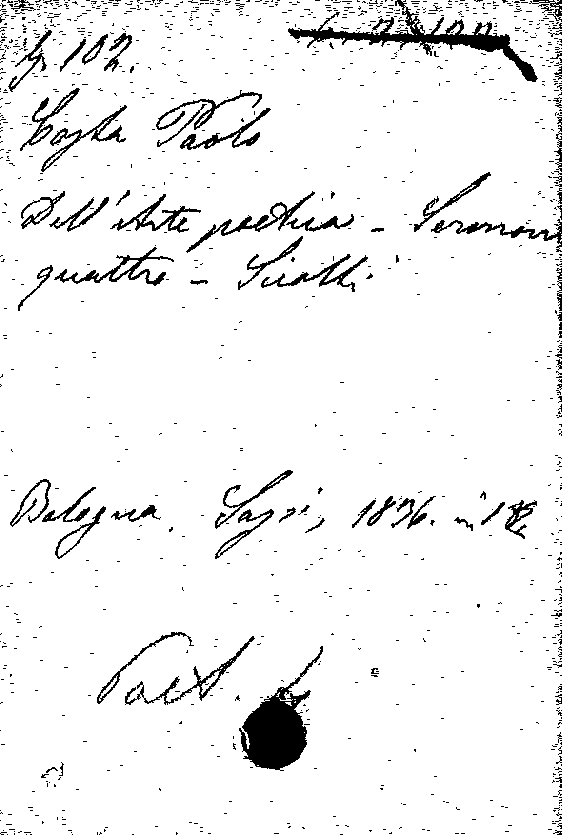 102.
Costa Paolo
Dell'Arte poetica - Sermoni
quattro - Sciolti.
Bologna, Sassi, 1836. in 12
Poet.